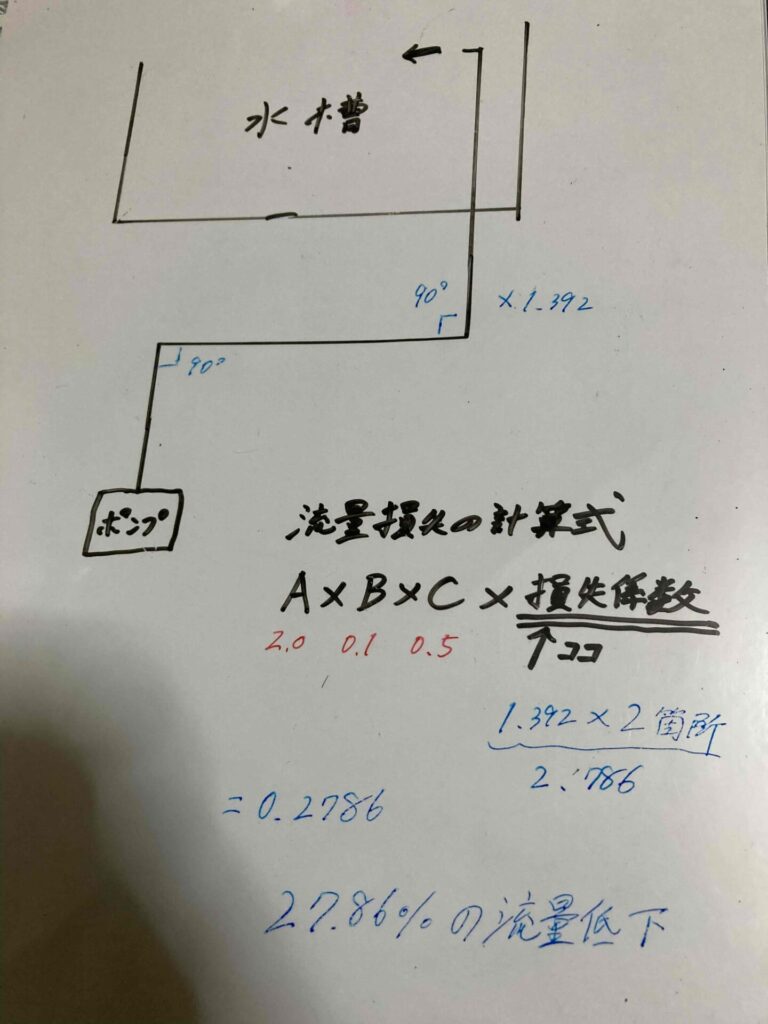 水槽
90° ×1.392
90°
ポンプ
流量損失の計算式
A×B×C×損失係数
2.0 0.1 0.5 ↑ココ
1.392×2箇所
2.786
=0.2786
27.86%の流量低下